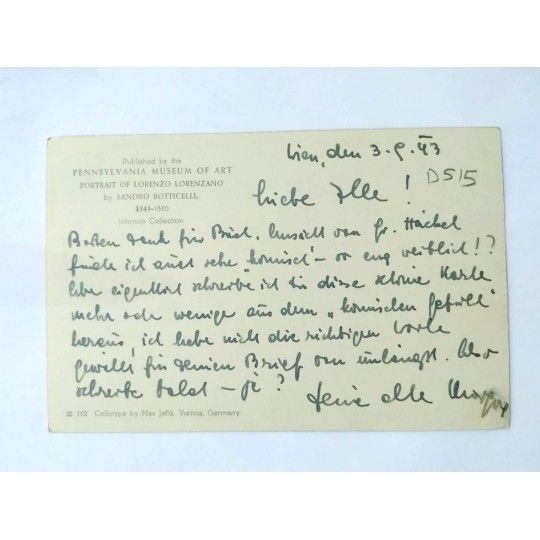 Published by the
PENNSYLVANIA MUSEUM OF ART
PORTRAIT OF LORENZO LORENZANO
by SANDRO BOTTICELLI,
1444-1510
Johnson Collection
Wien, den 3. 9. 43
D515
Liebe Ille!
Besten Dank für
finde ich auch sehr komisch – so eng weiblich!?
Aber eigentlich schreibe ich dir diese schöne Karte
mehr oder weniger aus dem „komischen Gefühl"
heraus, ich habe nicht die richtigen Worte
gewählt für deinen Brief von unlängst. Also
schreibe bald – ja?
Deine alte
163 Collotype by Max Jaffé, Vienna, Germany